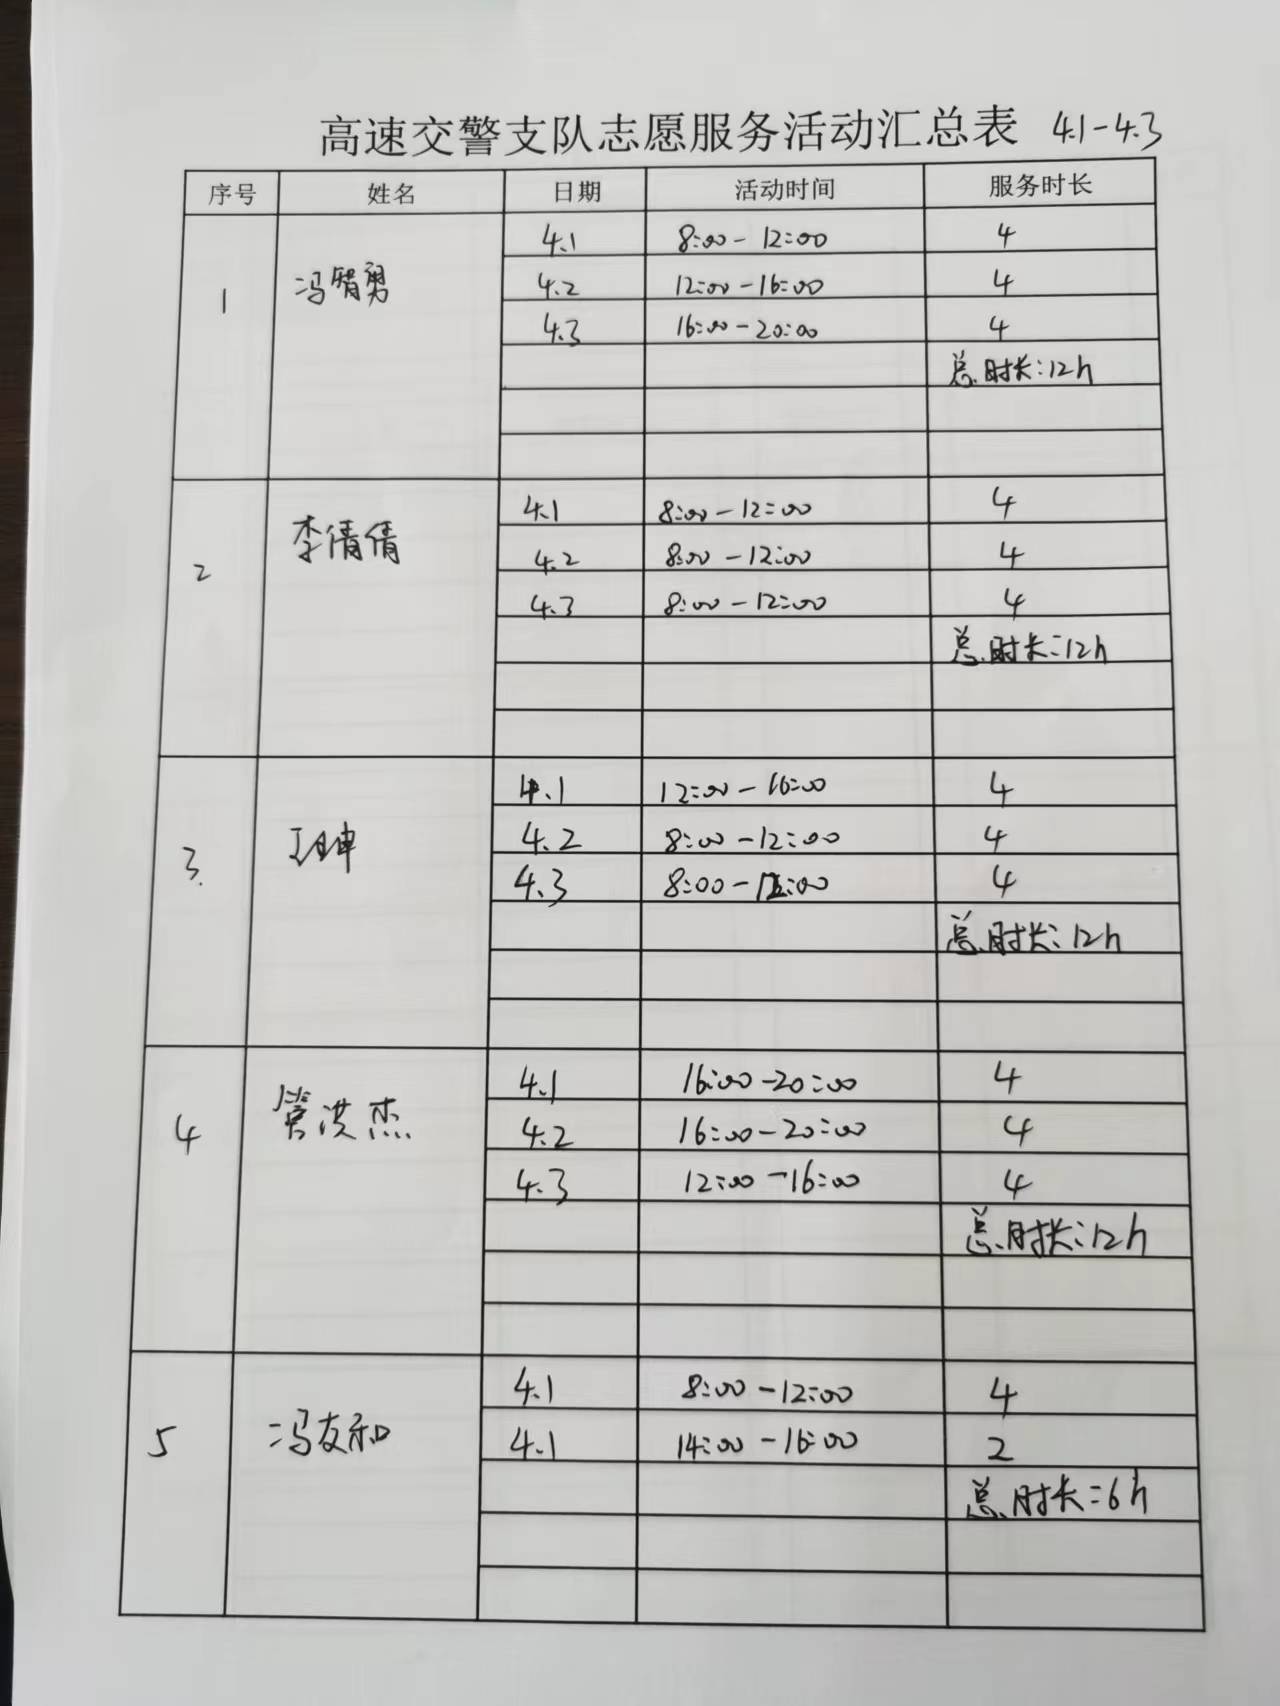 高速交警支队志愿服务活动汇总表 4.1-4.3
序号 姓名 日期 活动时间 服务时长
1 冯智勇 4.1 8:00-12:00 4
4.2 12:00-16:00 4
4.3 16:00-20:00 4
总时长:12h
2 李倩倩 4.1 8:00-12:00 4
4.2 8:00-12:00 4
4.3 8:00-12:00 4
总时长:12h
3. 4.1 12:00-16:00 4
4.2 8:00-12:00 4
4.3 8:00-12:00 4
总时长:12h
4 管洪杰 4.1 16:00-20:00 4
4.2 16:00-20:00 4
4.3 12:00-16:00 4
总时长:12h
5 冯友和 4.1 8:00-12:00 4
4.1 14:00-16:00 2
总时长:6h